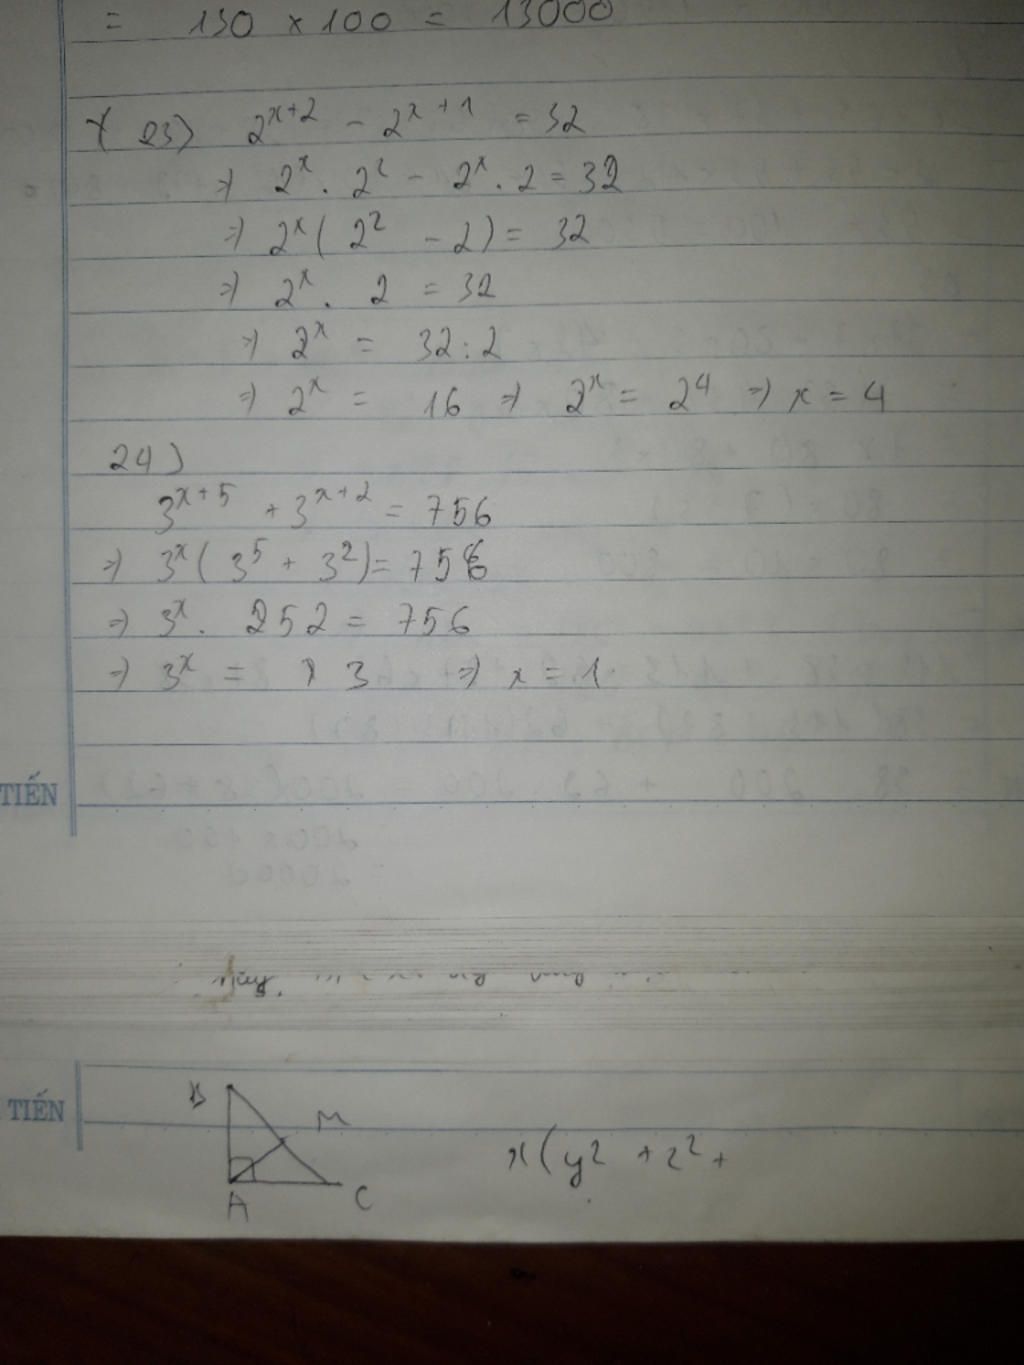 = 130 x 100 = 13000
23) 2^{x+2} - 2^{x+1} = 32
=> 2^x . 2^2 - 2^x . 2 = 32
=> 2^x ( 2^2 - 2 ) = 32
=> 2^x . 2 = 32
=> 2^x = 32 : 2
=> 2^x = 16 => 2^x = 2^4 => x = 4
24)
3^{x+5} + 3^{x+2} = 756
=> 3^x ( 3^5 + 3^2 ) = 756
=> 3^x . 252 = 756
=> 3^x = 3 => x = 1
TIẾN
TIẾN
B
M
x ( y^2 + z^2 +
A
C